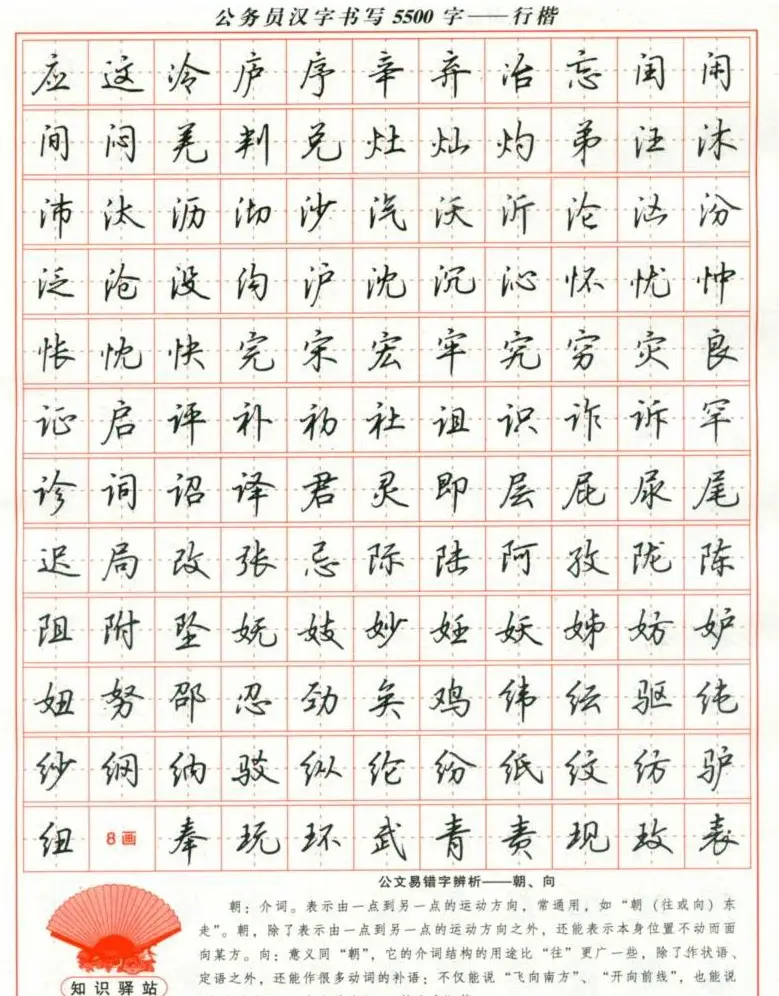 公务员汉字书写5500字——行楷
应这冷庐序辛弃治忘闰闲
间闷羌判兑灶灿灼弟汪沐
沛汰沥沏沙汽沃沂沦汹汾
泛沧没沟沪沈沉沁怀忧忡
怅忱快完宋宏牢究穷灾良
证启评补初社诅识诈诉罕
诊词诏译君灵即层屁尿尾
迟局改张忌际陆阿孜陇陈
阻附坠妩妓妙妊妖姊妨妒
妞努邵忍劲矣鸡纬纭驱纯
纱纲纳驳纵纶纷纸纹纺驴
纽 8画 奉玩环武青责现玫表
公文易错字辨析——朝、向
朝：介词。表示由一点到另一点的运动方向，常通用，如“朝（往或向）东
走”。朝，除了表示由一点到另一点的运动方向之外，还能表示本身位置不动而面
向某方。向：意义同“朝”，它的介词结构的用途比“往”更广一些，除了作状语、
定语之外，还能作很多动词的补语：不仅能说“飞向南方”、“开向前线”，也能说
知识驿站